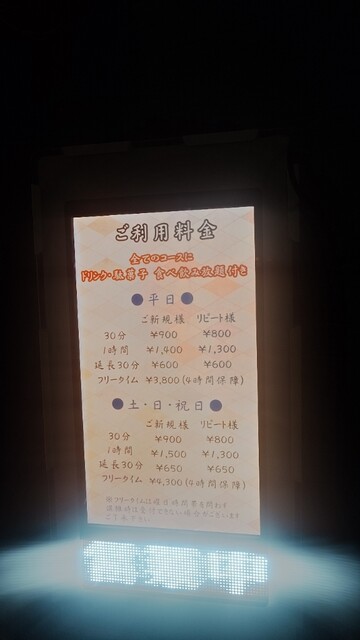 ご利用料金
全てのコースに
ドリンク・駄菓子 食べ飲み放題付き
●平日●
ご新規様 リピート様
30分 ¥900 ¥800
1時間 ¥1,400 ¥1,300
延長30分 ¥600 ¥600
フリータイム ¥3,800(4時間保障)
●土・日・祝日●
ご新規様 リピート様
30分 ¥900 ¥800
1時間 ¥1,500 ¥1,300
延長30分 ¥650 ¥650
フリータイム ¥4,300(4時間保障)
※フリータイムは曜日時間帯を問わず
混雑時は受付できない場合がございます
ご了承下さい
営業中